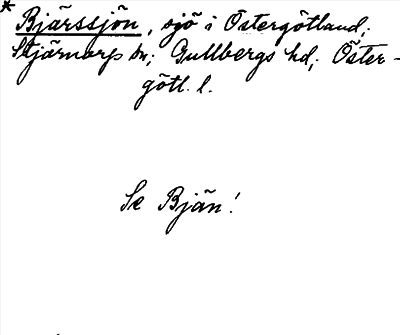 * Bjärssjön, sjö i Östergötland;
Stjärnorp sn; Gullbergs hd; Öster-
götl. l.
Se Bjän!